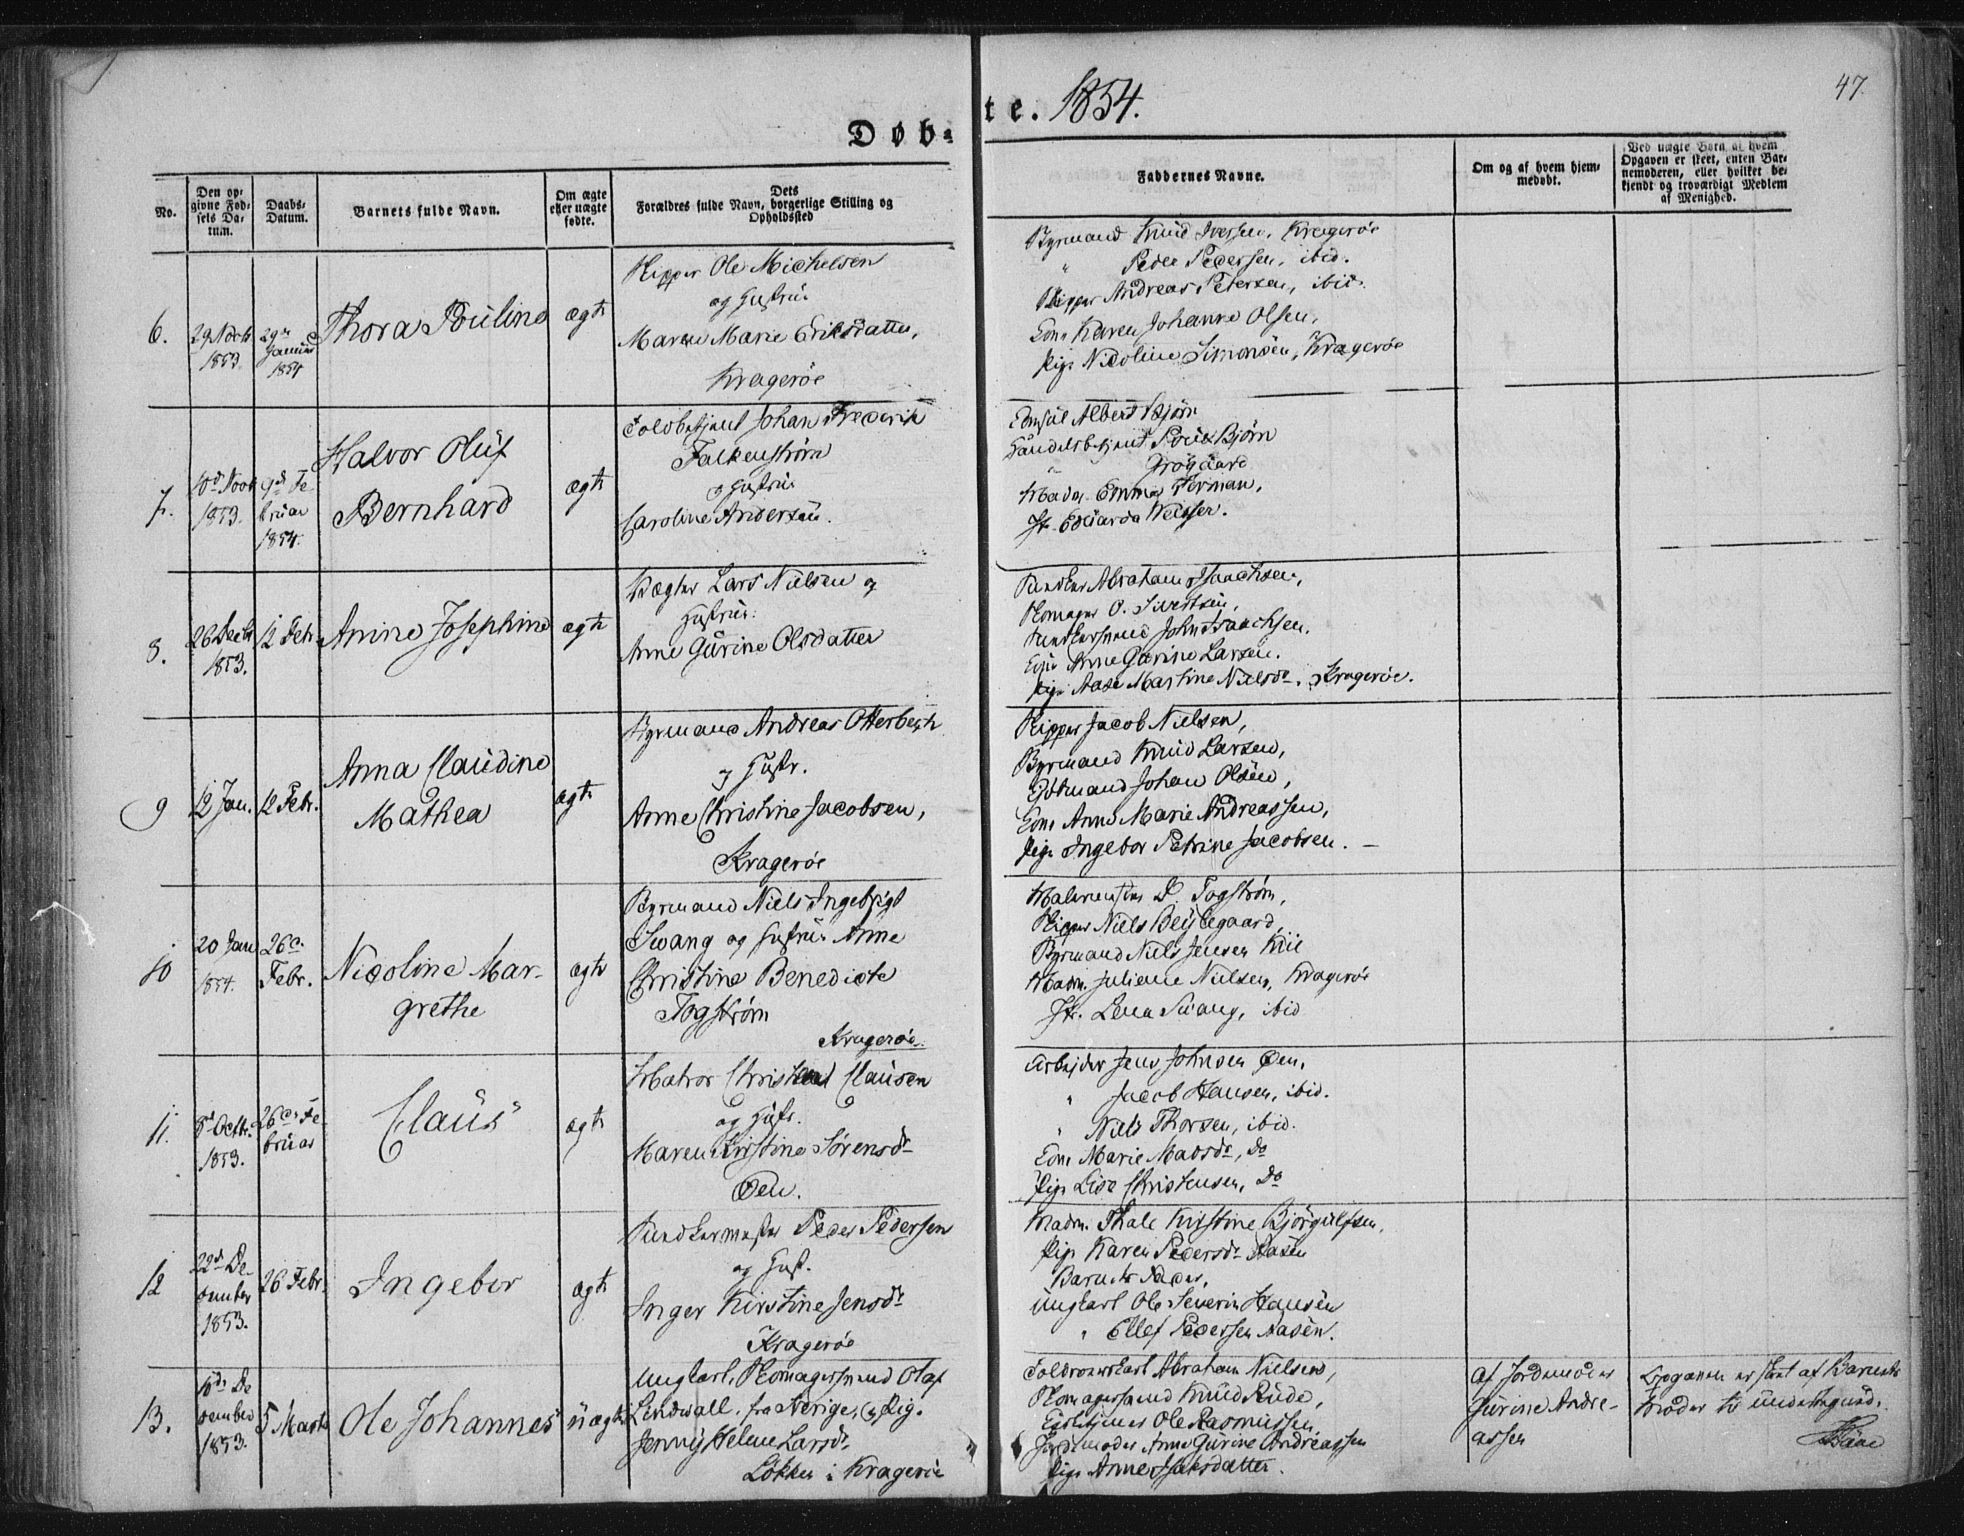 47.
Døb-te. 1854.
No.
Den op-
givne Fød-
sels Da-
tum.
Daabs-
Datum.
Barnets fulde Navn.
Om ægte
eller uægte
fødte.
Dets
Forældres fulde Navn, borgerlige Stilling og
Opholdssted
Faddernes Navne.
Om og af hvem hjem-
medøbt.
Ved uægte Børn af hvem
Opgaven er skeet, enten Bar-
nemoderen, eller hvilket be-
kjendt og troværdigt Medlem
af Menighed.
6.
1853.
Januar
1854
Thora Pouline
ægte
Skipper Ole Michelsen
og Hustrue
Maren Marie Eriksdatter,
Kragerøe
Byrmand Knud Iversen, Kragerøe
" Peder Pedersen, ibid.
Skipper Andreas Petersen, ibid.
Kone Karen Johanne Olsen,
Pige Nicoline Simonsen, Kragerøe
7.
1853.
9de Fe-
bruar
1854.
Halvor Oluf
Bernhard
ægte
Toldbetjent Johan Frederik
Falkenstrøm
og Hustrue
Caroline Andersen.
Consul Albert Bjørn
Handelsbetjent Poul Bjørn
" Grögaard
Madm. Emma Forman,
Jfr. Eduarda Weisser.
8.
26 Decbr
1853.
12 Febr.
Anine Josephine
ægte
Vægter Lars Nielsen og
Hustrue:
Anne Gurine Olsdatter
Abraham Isaachsen,
O. Sivertsen,
John Isaachsen.
Kone Anne Gurine Larsen.
Pige Aase Martine Nielsdr. Kragerøe.
9
12 Jan.
12 Febr.
Anna Claudine
Mathea
ægte
Byrmand Andreas Otterbech
og Hustr.
Anne Christine Jacobsen,
Kragerøe
Skipper Jacob Nielsen,
Byrmand Knud Larsen,
Johan Olsen,
Kone Anne Marie Andreassen,
Pige Ingebor Petrine Jacobsen.
10
20 Jan
1854.
26de
Febr.
Nicoline Mar-
grethe
ægte
Byrmand Niels Ingebrigt
Svang og Hustrue Anne
Christine Benedicte
Togstrøm
Kragerøe.
Malermester D. Togstrøm,
Skipper Niels Beylegaard,
Byrmand Niels Jensen Kiil
Madm. Juliane Nielsen, Kragerøe
Jfr. Lena Svang, ibid
11.
Octbr.
1853.
26de Fe-
bruar
Claus
ægte
Matros Christen Clausen
og Hustr.
Maren Kirstine Sørensdr
Øen.
Arbejder Jens Johnsen Øen,
" Jacob Hansen, ibid.
" Niels Thorsen, ibid.
Kone Marie Madsdr, do
Pige Lise Christensen, do
12
22de De-
cember
1853.
26 Febr.
Ingebor
ægte
Peder Pedersen
og Hust.
Inger Kirstine Jensdr
Kragerøe
Madm. Thale Kirstine Bjørgulfsen,
Pige Karen Pedersdr Aasen
Barnets Fader,
Ungkarl Ole Severin Hansen
" Ellef Pedersen Aasen.
13.
De
cember
1853.
5 Marts
Ole Johannes
uægte
Ungkarl, Olaf
Lindwall, fra Sverige, og Pig.
Jenny Helene Larsdr
Løkken i Kragerøe
Abraham Nielsen,
Knud Rude,
Ole Rasmussen
Jordemoder Anne Gurine Andreassen
Pige Anne Isaksdatter.
af Jordemoder
Gurine Andre-
assen
Opgaven er skeet af Barnets
Moder til undertegnede.